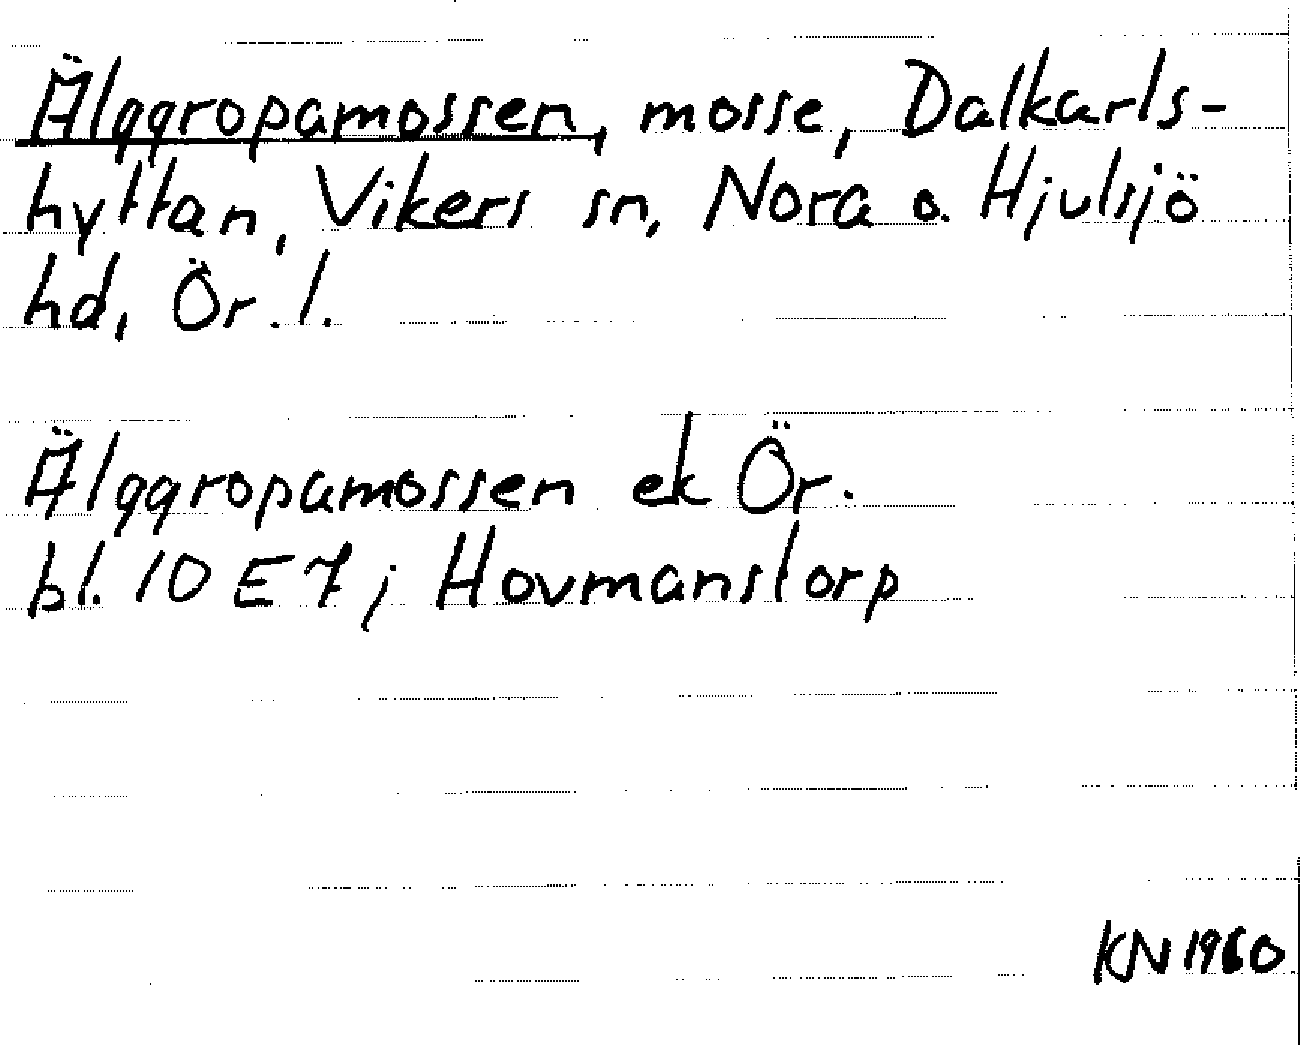 Älggropamossen, mosse, Dalkarls-
hyttan, Vikers sn, Nora o. Hjulsjö
hd, Ör. l.
Älggropamossen ek Ör.
bl. 10 E 7 j Hovmanstorp
KN 1960